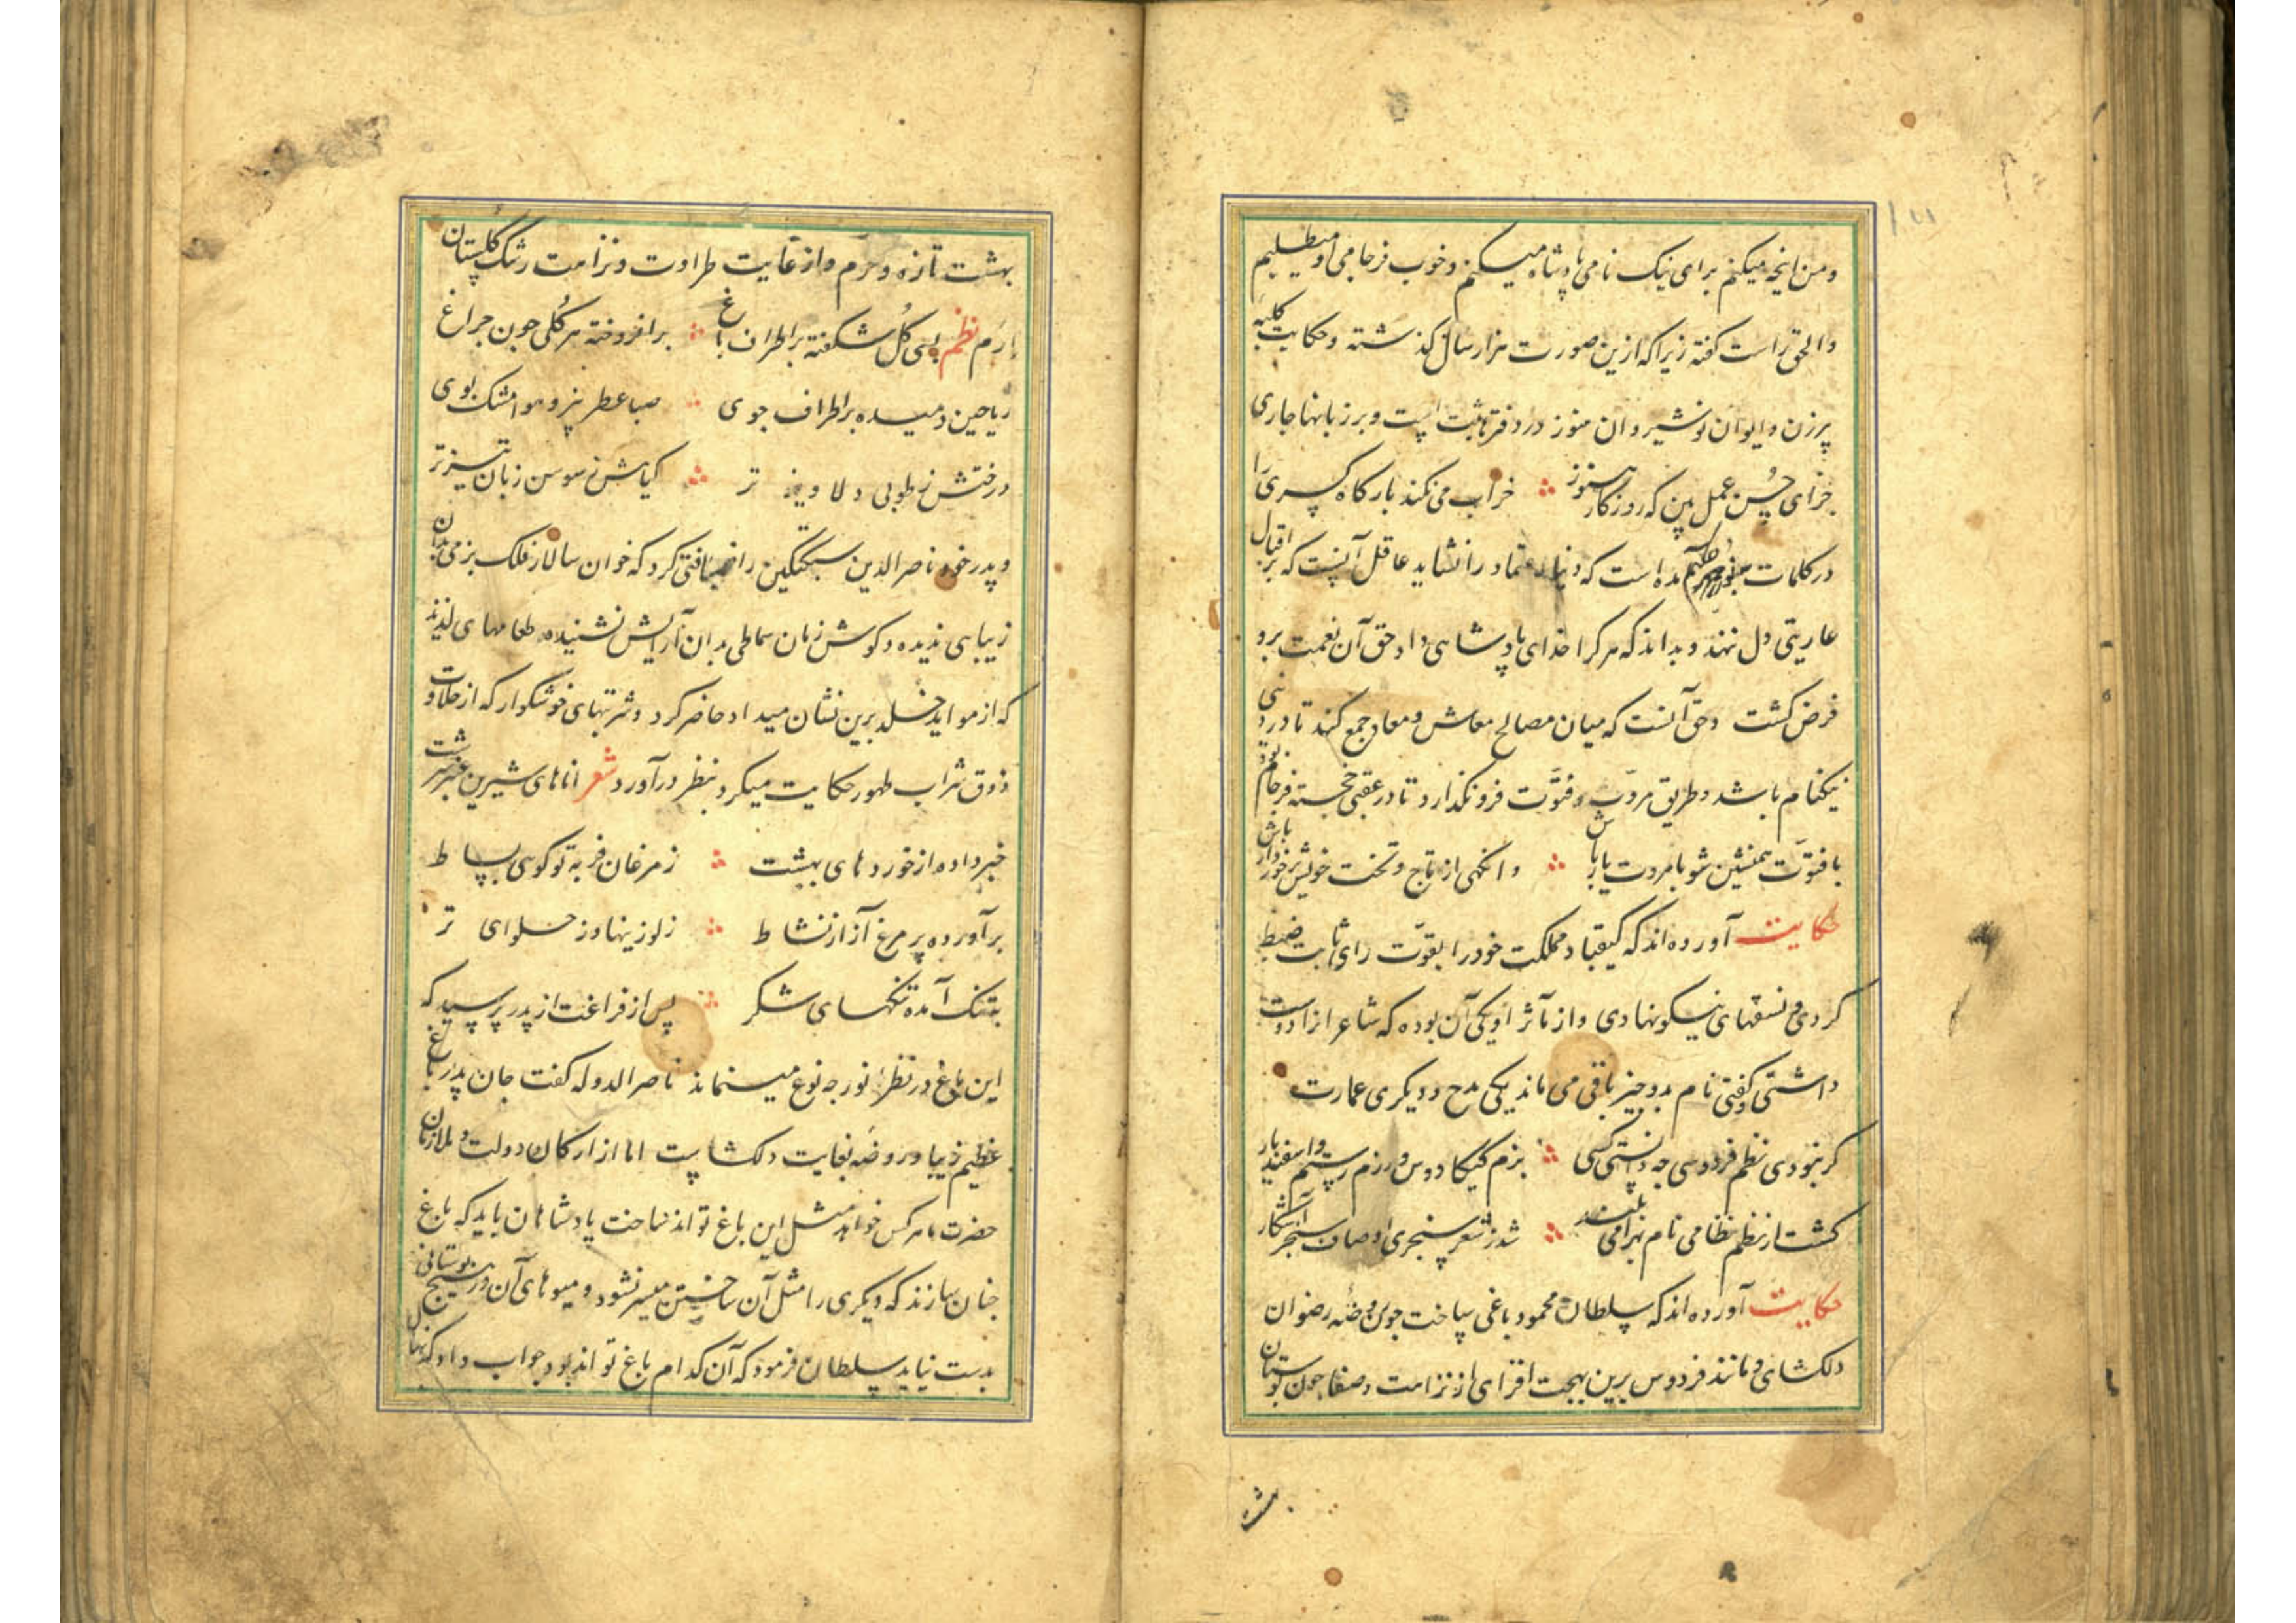 ومن اینچه میکنم برای نیک نامی پادشاه میکنم و خوب فرجامی او میطلبم
والحق راست کفته زیرا که ازین صورت هزار سال کذشته و حکایت کلبه
پرزن و ایوان نوشیروان هنوز در دفترها ثبت است و بر زبانها جاری
جزای حسن عمل بین که روزکار هنوز خراب می نکند بارکاه کسری را
در کلمات حکیم آمده است که دنیا اعتماد را نشاید عاقل آنست که بر اقبال
عاریتی دل ننهد و بداند که هر کرا خدای پادشاهی داد حق آن نعمت برو
فرض کشت وحق آنست که میان مصالح معاش و معاد جمع کند تا در دنیی
نیکنام باشد وطریق مروّت و فتوّت فرو نکذارد تا در عقبی خجسته فرجام بود
با فتوّت همنشین شو با مروت یار باش وانکهی از تاج و تخت خویش برخوردار باش
حکایت آورده اند که کیقباد مملکت خود را بقوّت رای ثابت ضبط
کردی و نسقهای نیکو نهادی و از مآثر او یکی آن بوده که شاعرانرا دوست
داشتی و کفتی نام بدو چیز باقی می ماند یکی مدح و دیکری عمارت
کر نبودی نظم فردوسی چه دانستی کسی بزم کیکاوس و رزم رستم و اسفندیار
کشت از نظم نظامی نام بهرامی بلند شد ز شعر سنجری اوصاف سنجر آشکار
حکایت آورده اند که سلطان محمود باغی ساخت چون روضه رضوان
دلکشای و مانند فردوس برین بهجت افزای از نزاهت و صفا چون بوستان
بهشت
بهشت تازه و خرم و از غایت طراوت و نزاهت رشک گلستان
ارم نظم بسی کُل شکفته بر اطراف باغ برافروخته هر کُلی چون چراغ
ریاحین دمیده بر اطراف جوی صبا عطر بیز و هوا مشک بوی
درختش ز طوبی دلاویز تر کیاهش ز سوسن زبان تیز تر
و پدر خود ناصر الدین سبکتکین را ضیافتی کرد که خوان سالار فلک بزمی بدان
زیبایی ندیده و کوش زمان سماطی بدان آرایش نشنیده طعامهای لذیذ
که از مواید خلد برین نشان میداد حاضر کرد و شربتهای خوشکوار که از حلاوت
ذوق شراب طهور حکایت میکرد بنظر درآورد شعر اناهای شیرین عنبر سرشت
خبر داده از خوردهای بهشت ز مرغان فربه تو کوسی بساط
برآورده پر مرغ آز از نشاط ز لوزینها وز حلوای تر
بتنک آمده تنکهای شکر پس از فراغت از پدر پرسید که
این باغ در نظر انور چه نوع مینماید ناصر الدوله کفت جان پدر باغ
عظیم زیبا و روضه بغایت دلکشاست اما از ارکان دولت و ملازمان
حضرت ما هر کس خواهد مثل این باغ تواند ساخت پادشاهان باید که باغ
چنان سازند که دیکری را مثل آن ساختن میسر نشود و میوهای آن در هیچ بوستانی
بدست نیاید سلطان فرمود که آن کدام باغ تواند بود جواب داد که نهال